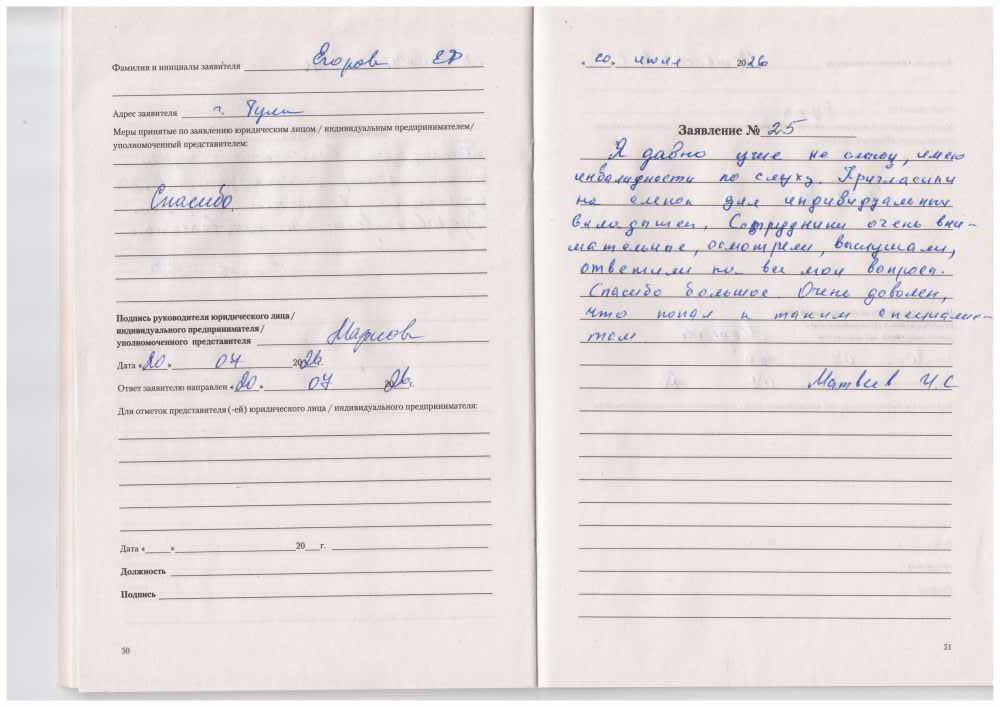 Фамилия и инициалы заявителя Егоров ЕФ
Адрес заявителя г. Тула
Меры принятые по заявлению юридическим лицом / индивидуальным предпринимателем/
уполномоченный представителем:
Спасибо
Подпись руководителя юридического лица /
индивидуального предпринимателя /
уполномоченного представителя
Дата «20» 07 2026г.
Ответ заявителю направлен «20» 07 2026г.
Для отметок представителя (-ей) юридического лица / индивидуального предпринимателя:
Дата «_____» 20___г.
Должность
Подпись
50
« » июля 2026
Заявление № 25
Я давно уже не слышу, имею
инвалидности по слуху. Пригласили
на слепок для индивидуальных
вкладышей. Сотрудники очень вни-
мательные, осмотрели, выслушали,
ответили на все мои вопросы.
Спасибо большое. Очень доволен,
что попал к таким специалис-
там
Матвеев И.С
51